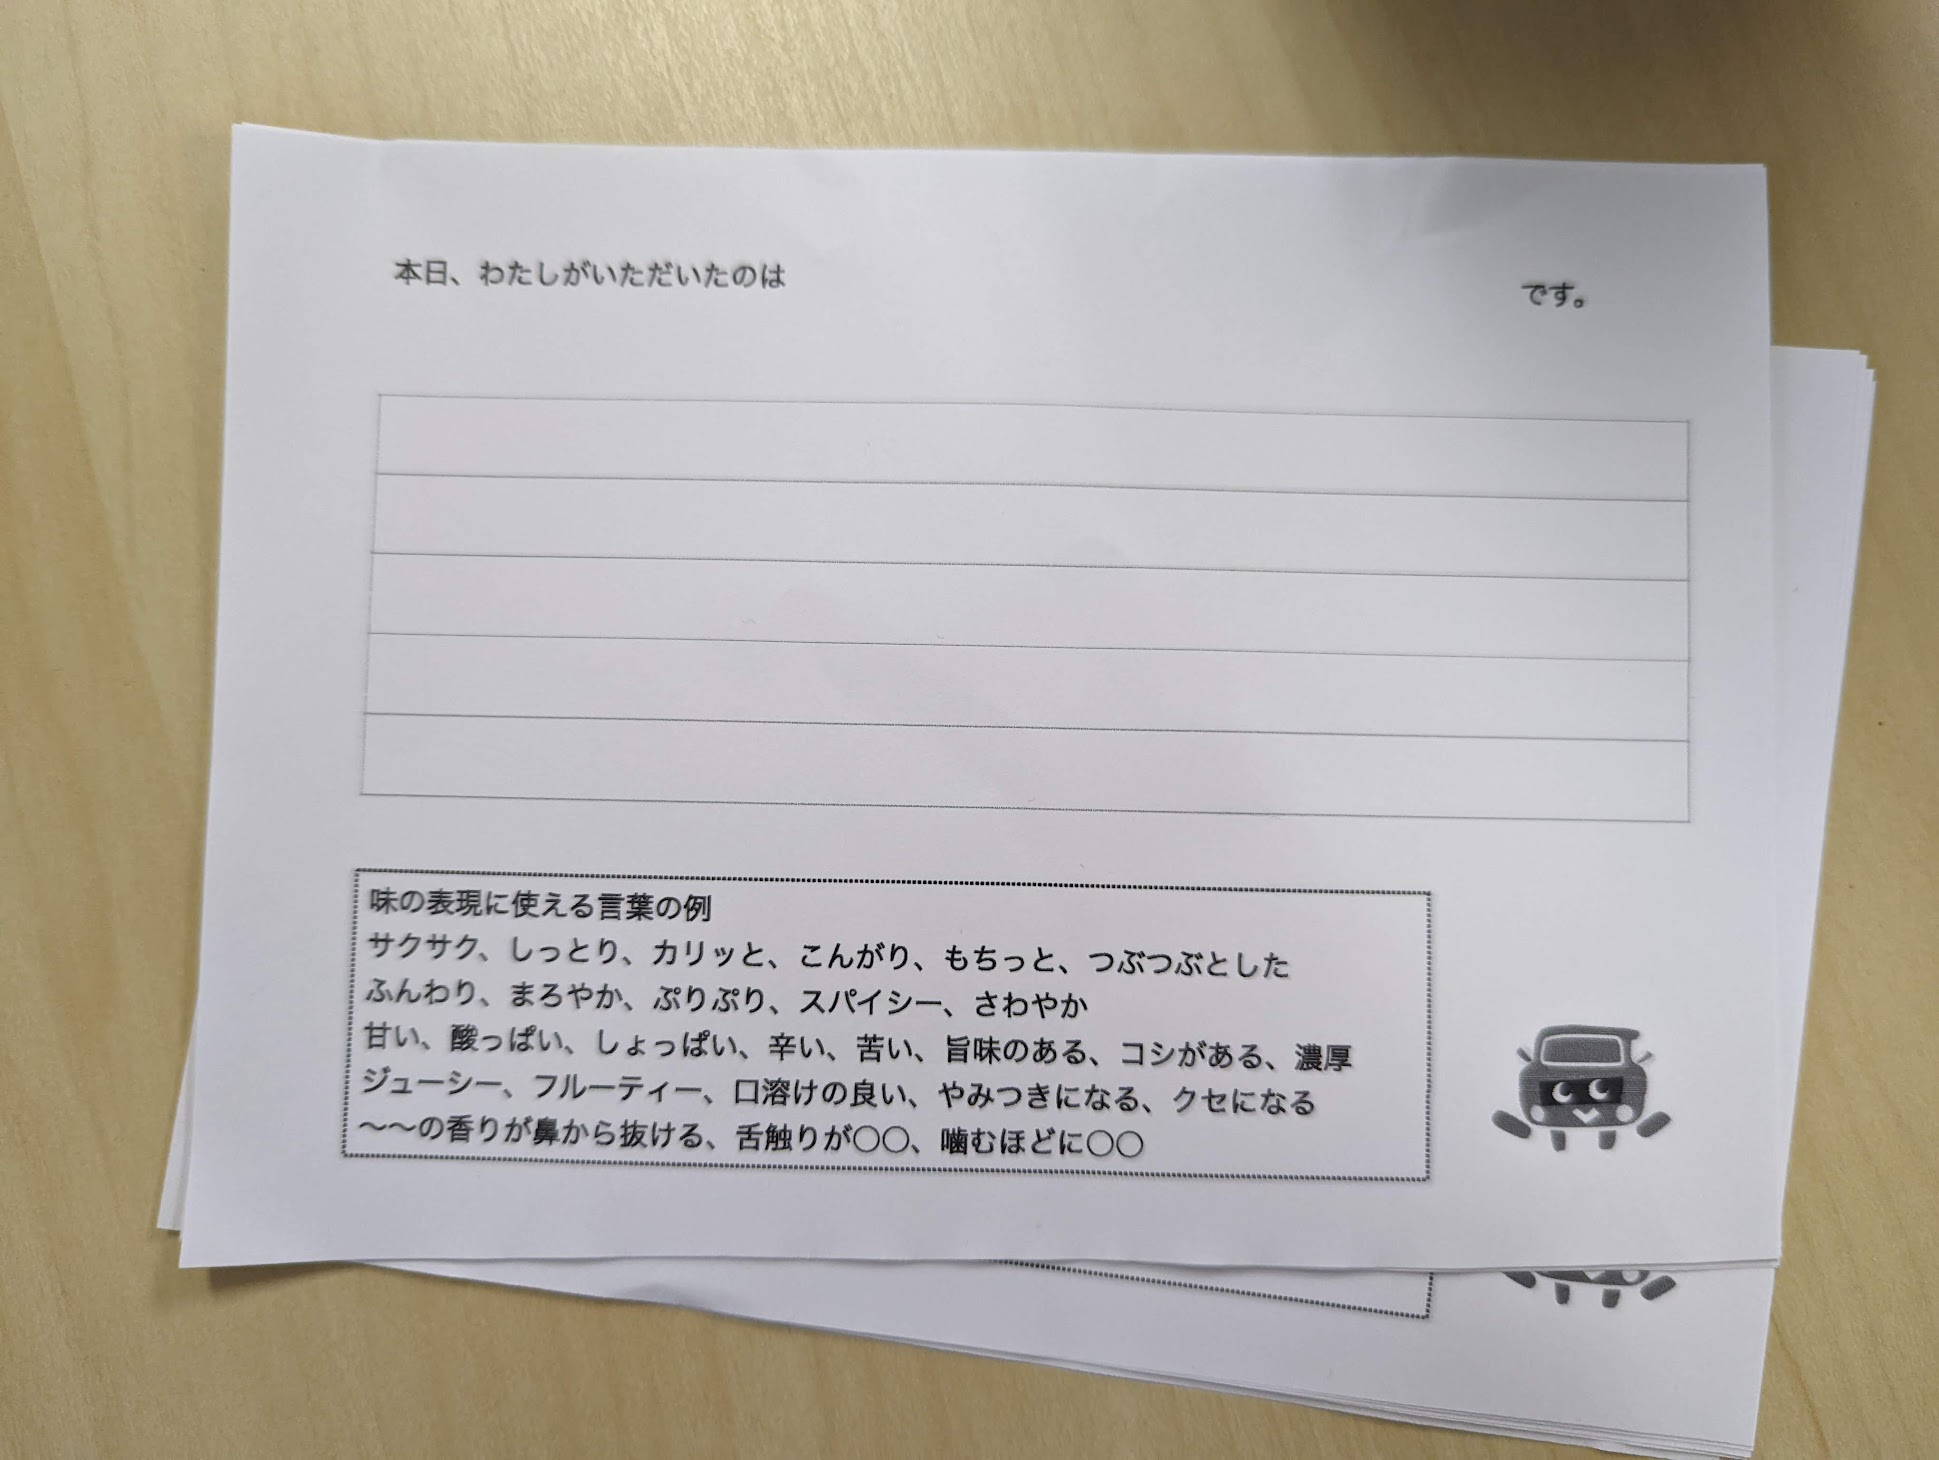 本日、わたしがいただいたのは
です。
味の表現に使える言葉の例
サクサク、しっとり、カリッと、こんがり、もちっと、つぶつぶとした
ふんわり、まろやか、ぷりぷり、スパイシー、さわやか
甘い、酸っぱい、しょっぱい、辛い、苦い、旨味のある、コシがある、濃厚
ジューシー、フルーティー、口溶けの良い、やみつきになる、クセになる
〜〜の香りが鼻から抜ける、舌触りが〇〇、噛むほどに〇〇